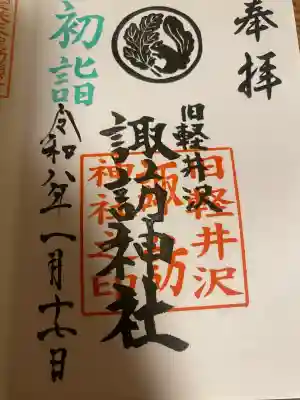 奉拝
旧軽井沢
諏訪神社
初詣
令和八年一月十七日
旧軽井沢
諏訪
神社之印